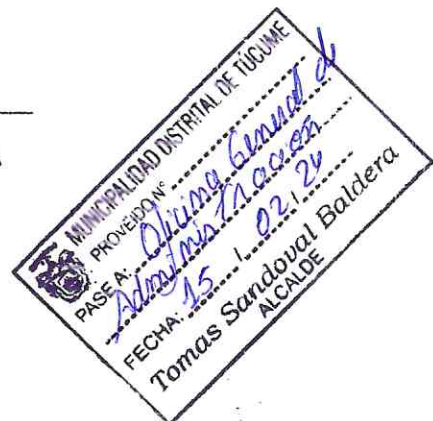 MUNICIPALIDAD DISTRITAL DE TÚCUME
PROVEIDO N° ....................
PASE A: Oficina General de
Administración
FECHA: 15 / 02 / 24
Tomas Sandoval Baldera
ALCALDE